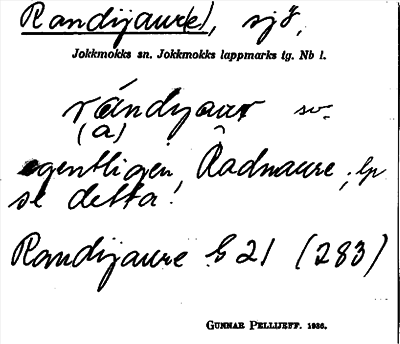 Randijaur(e), sjö,
Jokkmokks sn. Jokkmokks lappmarks tg. Nb l.
rándijaur sv.
(a)
egentligen Râdnaure; lp
se detta!
Randijaure G 21 (283)
GUNNAR PELLIJEFF. 1936.